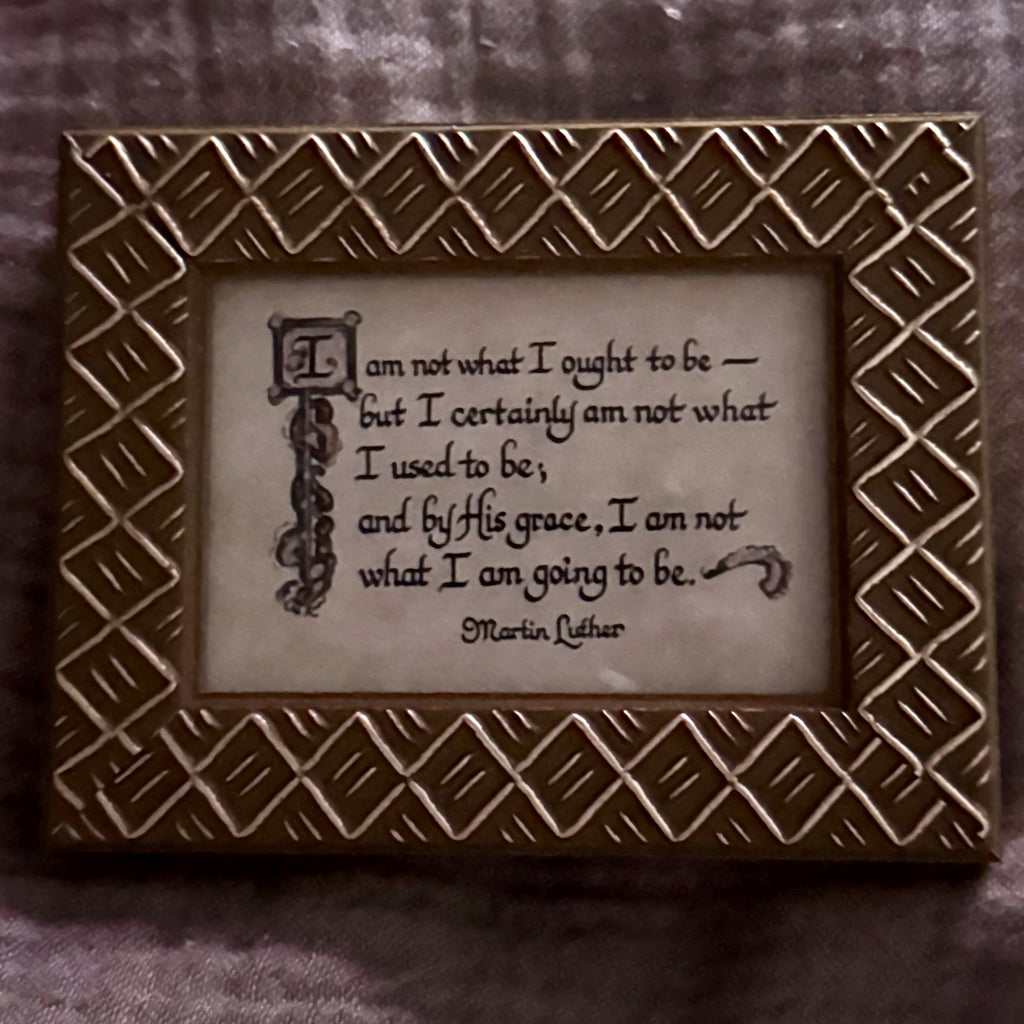 I am not what I ought to be —
but I certainly am not what
I used to be;
and by His grace, I am not
what I am going to be.
Martin Luther